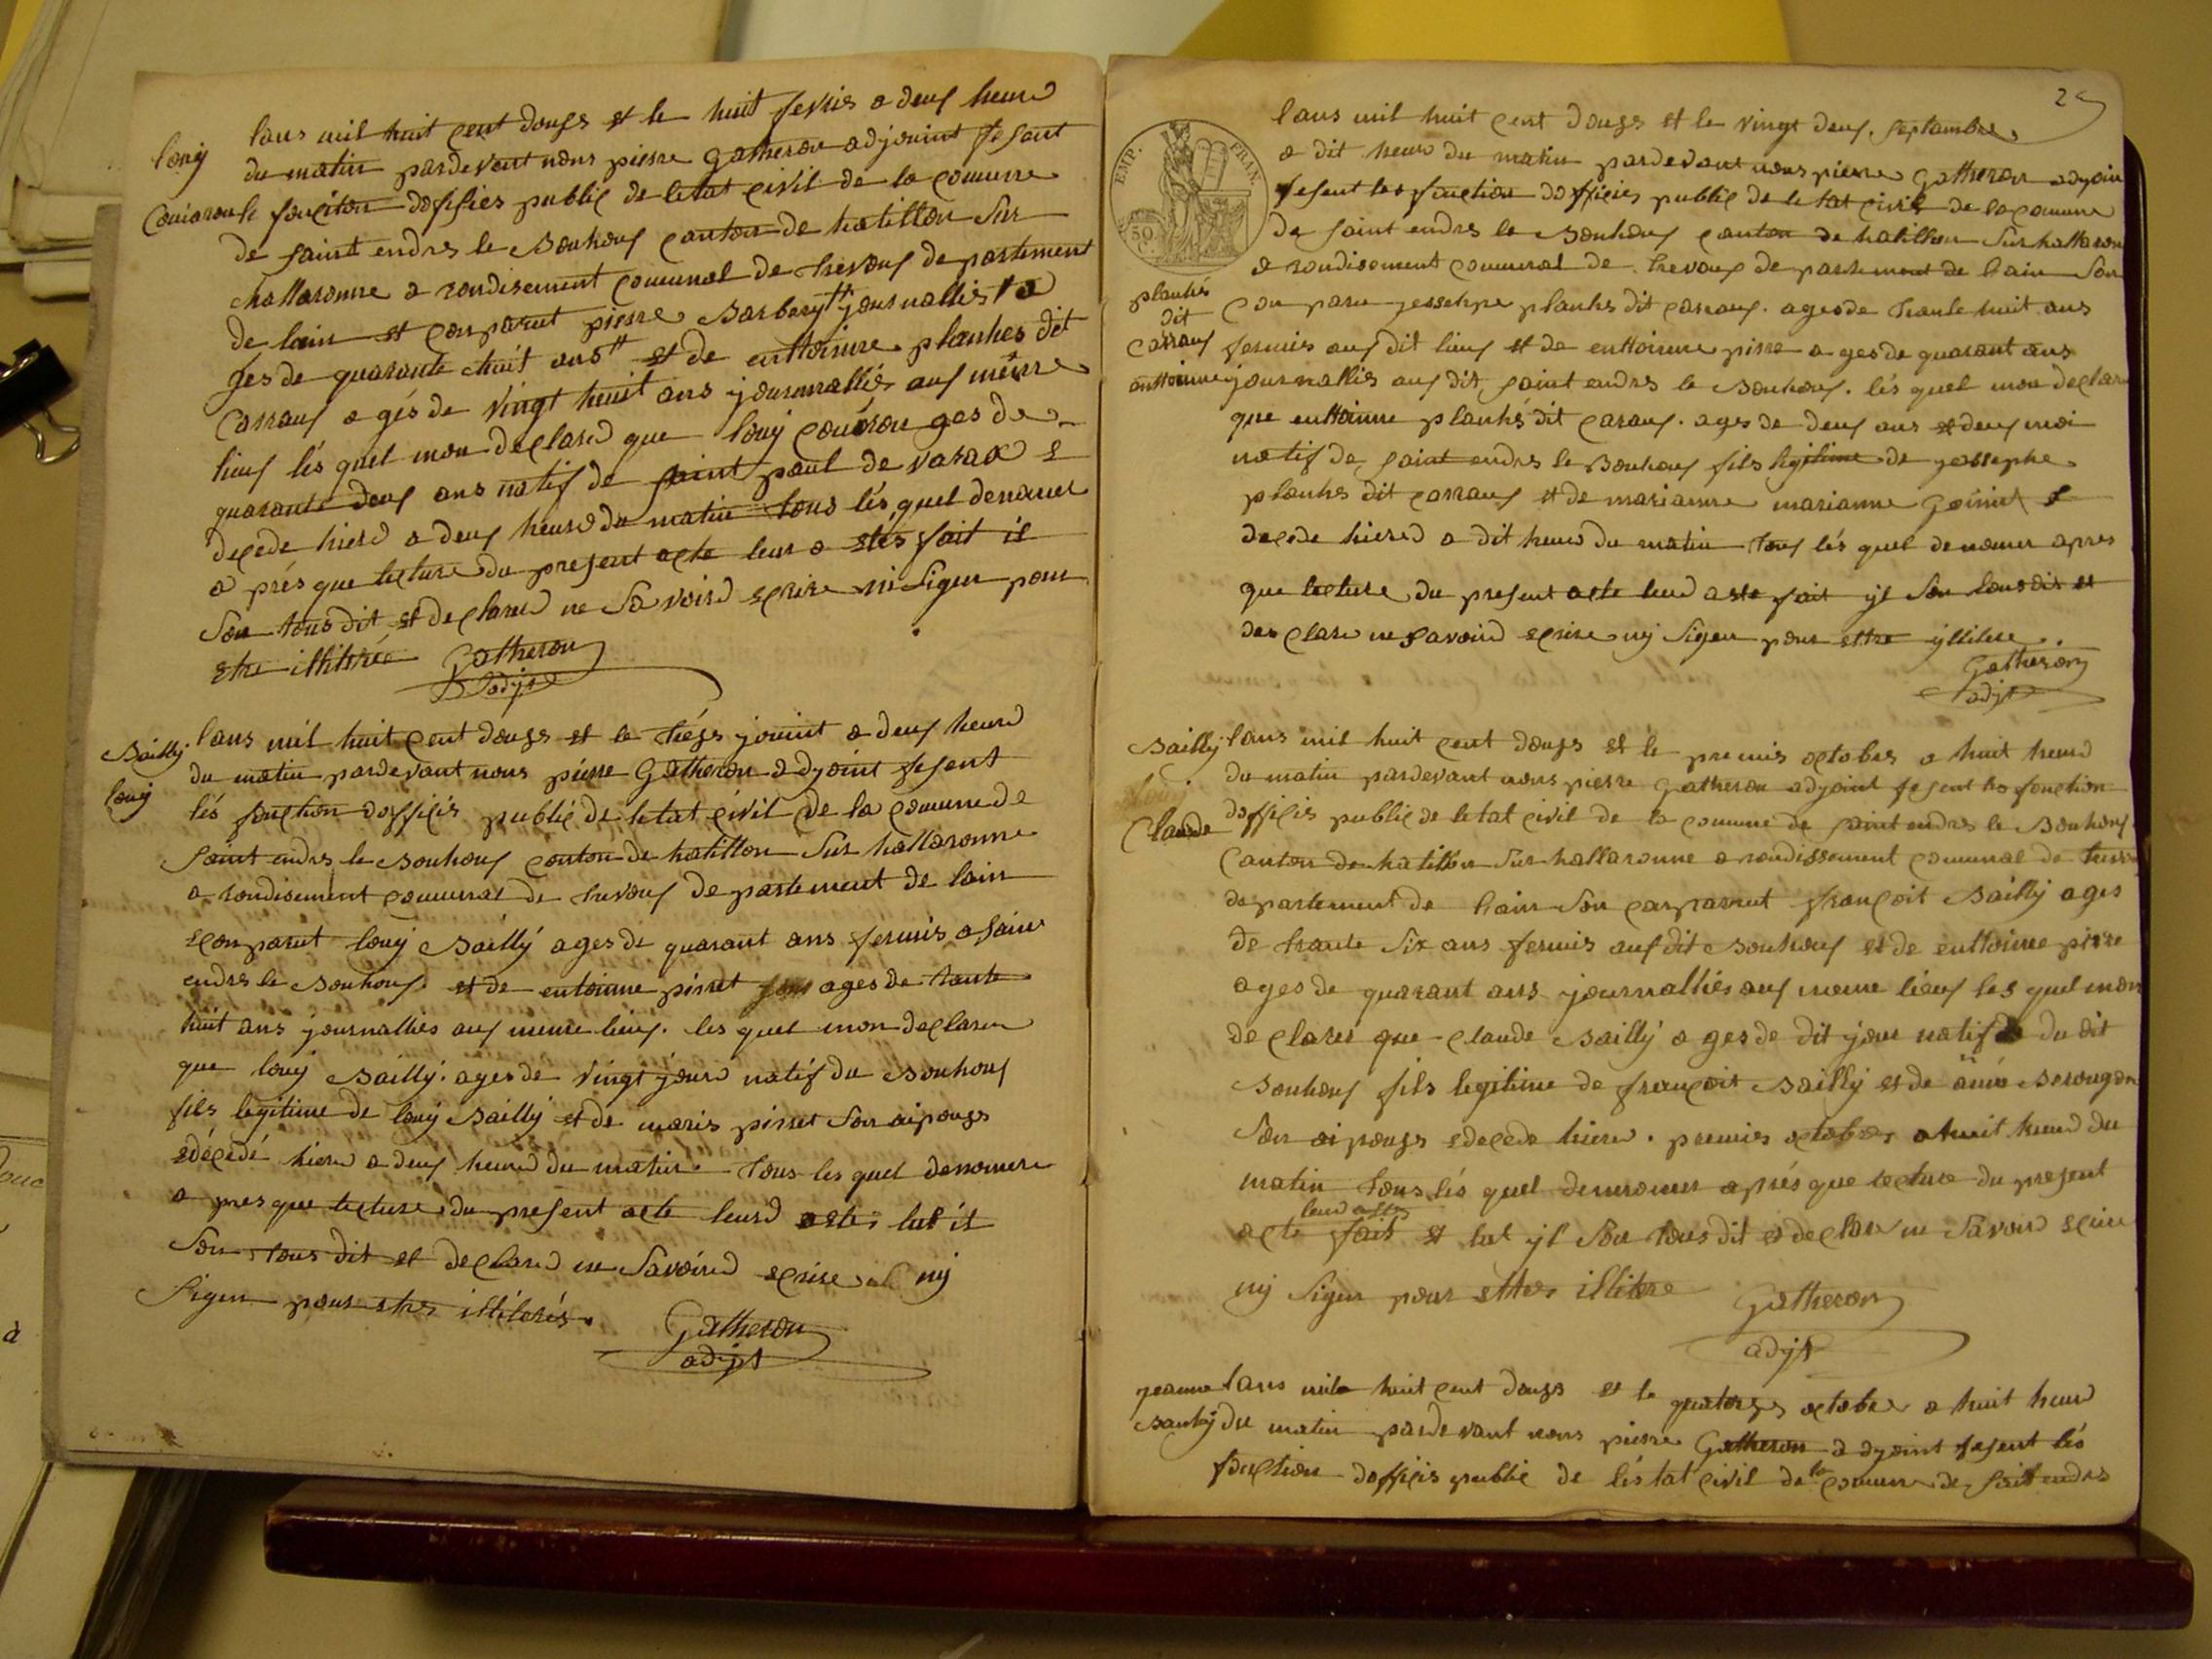 lans mil huit cent douzs et le huit fevries a deuf heure
louij
du matin pardevent nous pierre Gatheron adjouint fesant
Couiaron
le fonction dofficies public de letat civil de la comunne
de saint endres le Bouhouf canton de hatillon Sur
challaronne a rondisement comunal de trevouf de partement
de lain et comparut pierre Barbery journallies a
ges de quarante huit ans et de enttoinne plankes dit
Carrauf a gés de vingt huit ans journnalliés auf même
lieuf lés quel mon declared que louij couéron ges de
quarante deuf ans natif de saint paul de varax e
decede hierd a deuf heured du matin tous lés quel denomer
a prés que lecture du present acte leur a etés fait il
Son tous dit et declared ne Savoird ecrire ni Signer pour
etre illitréé Gatheron
adjt
Bailly
lans mil huit cent douzs et le tiézs jouint a deuf heurd
louij
du matin pardevant nous pierre Gatheron adjoint fesent
lés fonction dofficiés public de letat civil de la comunne de
saint endres le Bouhouf canton de hatillon Sur hallaronne
a rondisement comunnal de trevouf de partement de lain
econparut louij Bailly ages de quarant ans fermis a sain
endres le Bouhouf et de entoinne pirret ages de tante
huit ans journallies auf meme lieuf. les quel mon declarer
que louij Bailly. ages de vingt jourd natif du Bouhouf
fils legitime de louij Bailly et de maris pirret Son aipouzs
edécédé hierd a deuf heured du matin. tous les quel denomere
a pres que lecture du present acte leurd a etes lut il
Son tous dit et declared ne Savoird ecrire nij
Signer pour etres illiterés. Gatheron
adjt
25
EMP. FRAN.
50
C
lans mil huit cent douzs et le vingt deuf. septembre
a dit heure du matin pardevant nous pierre Gatheron adjoin
fesent les fonction dofficies public de le tat civil de la comunne
de saint endres le Bouhouf canton de hatillon Sur hallaron
a rondisement comunnal de trevouf de partement de lain Son
plankés
dit
carrauf
anttoinne
con paru jossephe plankes dit carrauf. ages de trante huit ans
fermies auf dit lieuf et de enttoinne pirre a ges de quarant ans
journallies auf dit saint endres le Bouhouf. lés quel mon declare
que enttoinne plankés dit carauf. ages de deuf ans et deuf moi
natif de saint endres le Bouhouf fils legitime de jossephe
plankes dit carrauf et de marianne marianne Goinint e
decede hiered a dit heurd du matin touf lés quel denomer apres
que lecture du present acte leurd a ete fait yl Son tous dit et
des clare ne Savoird ecrire nij Signer pour ettre yllitere.
Gatheron
adjt
Bailly
lans mil huit cent douzs et le premis octobes a huit heurd
du matin pardevant nous pierre Gatheron adjoint fesent les fonction
Claude
dofficis public de letat civil de la comunne de saint endres le Bouhouf
Canton de hatillon Sur hallaronne a rondissement comunnal de trevou
departement de lain Son conparrut françoit Bailly ages
de trante Six ans fermis auf dit Bouhouf et de enttoinne pirre
ages de quarant ans journalliés auf meme lieuf les quel mon
de clarer que claude Bailly a ges de dit jour natif du dit
Bouhouf fils legitime de françoit Bailly et de
Son aipouzs edecede hierd. premies octobres a huit heurd du
matin tous lés quel denomer aprés que lecture du present
leurd a ete
acte fait et lut yl Son tous dit et declare ne Savoird ecrire
nij Signer pour etres illitere Gatheron
adjt
jeanne
lans mil huit cent douzs et le quatorzs octobre a huit heurd
Banhij
du matin pardevant nous pierre Gatheron adjoint fesent lés
fonction dofficis public de léstat civil de la comunne de saint endres